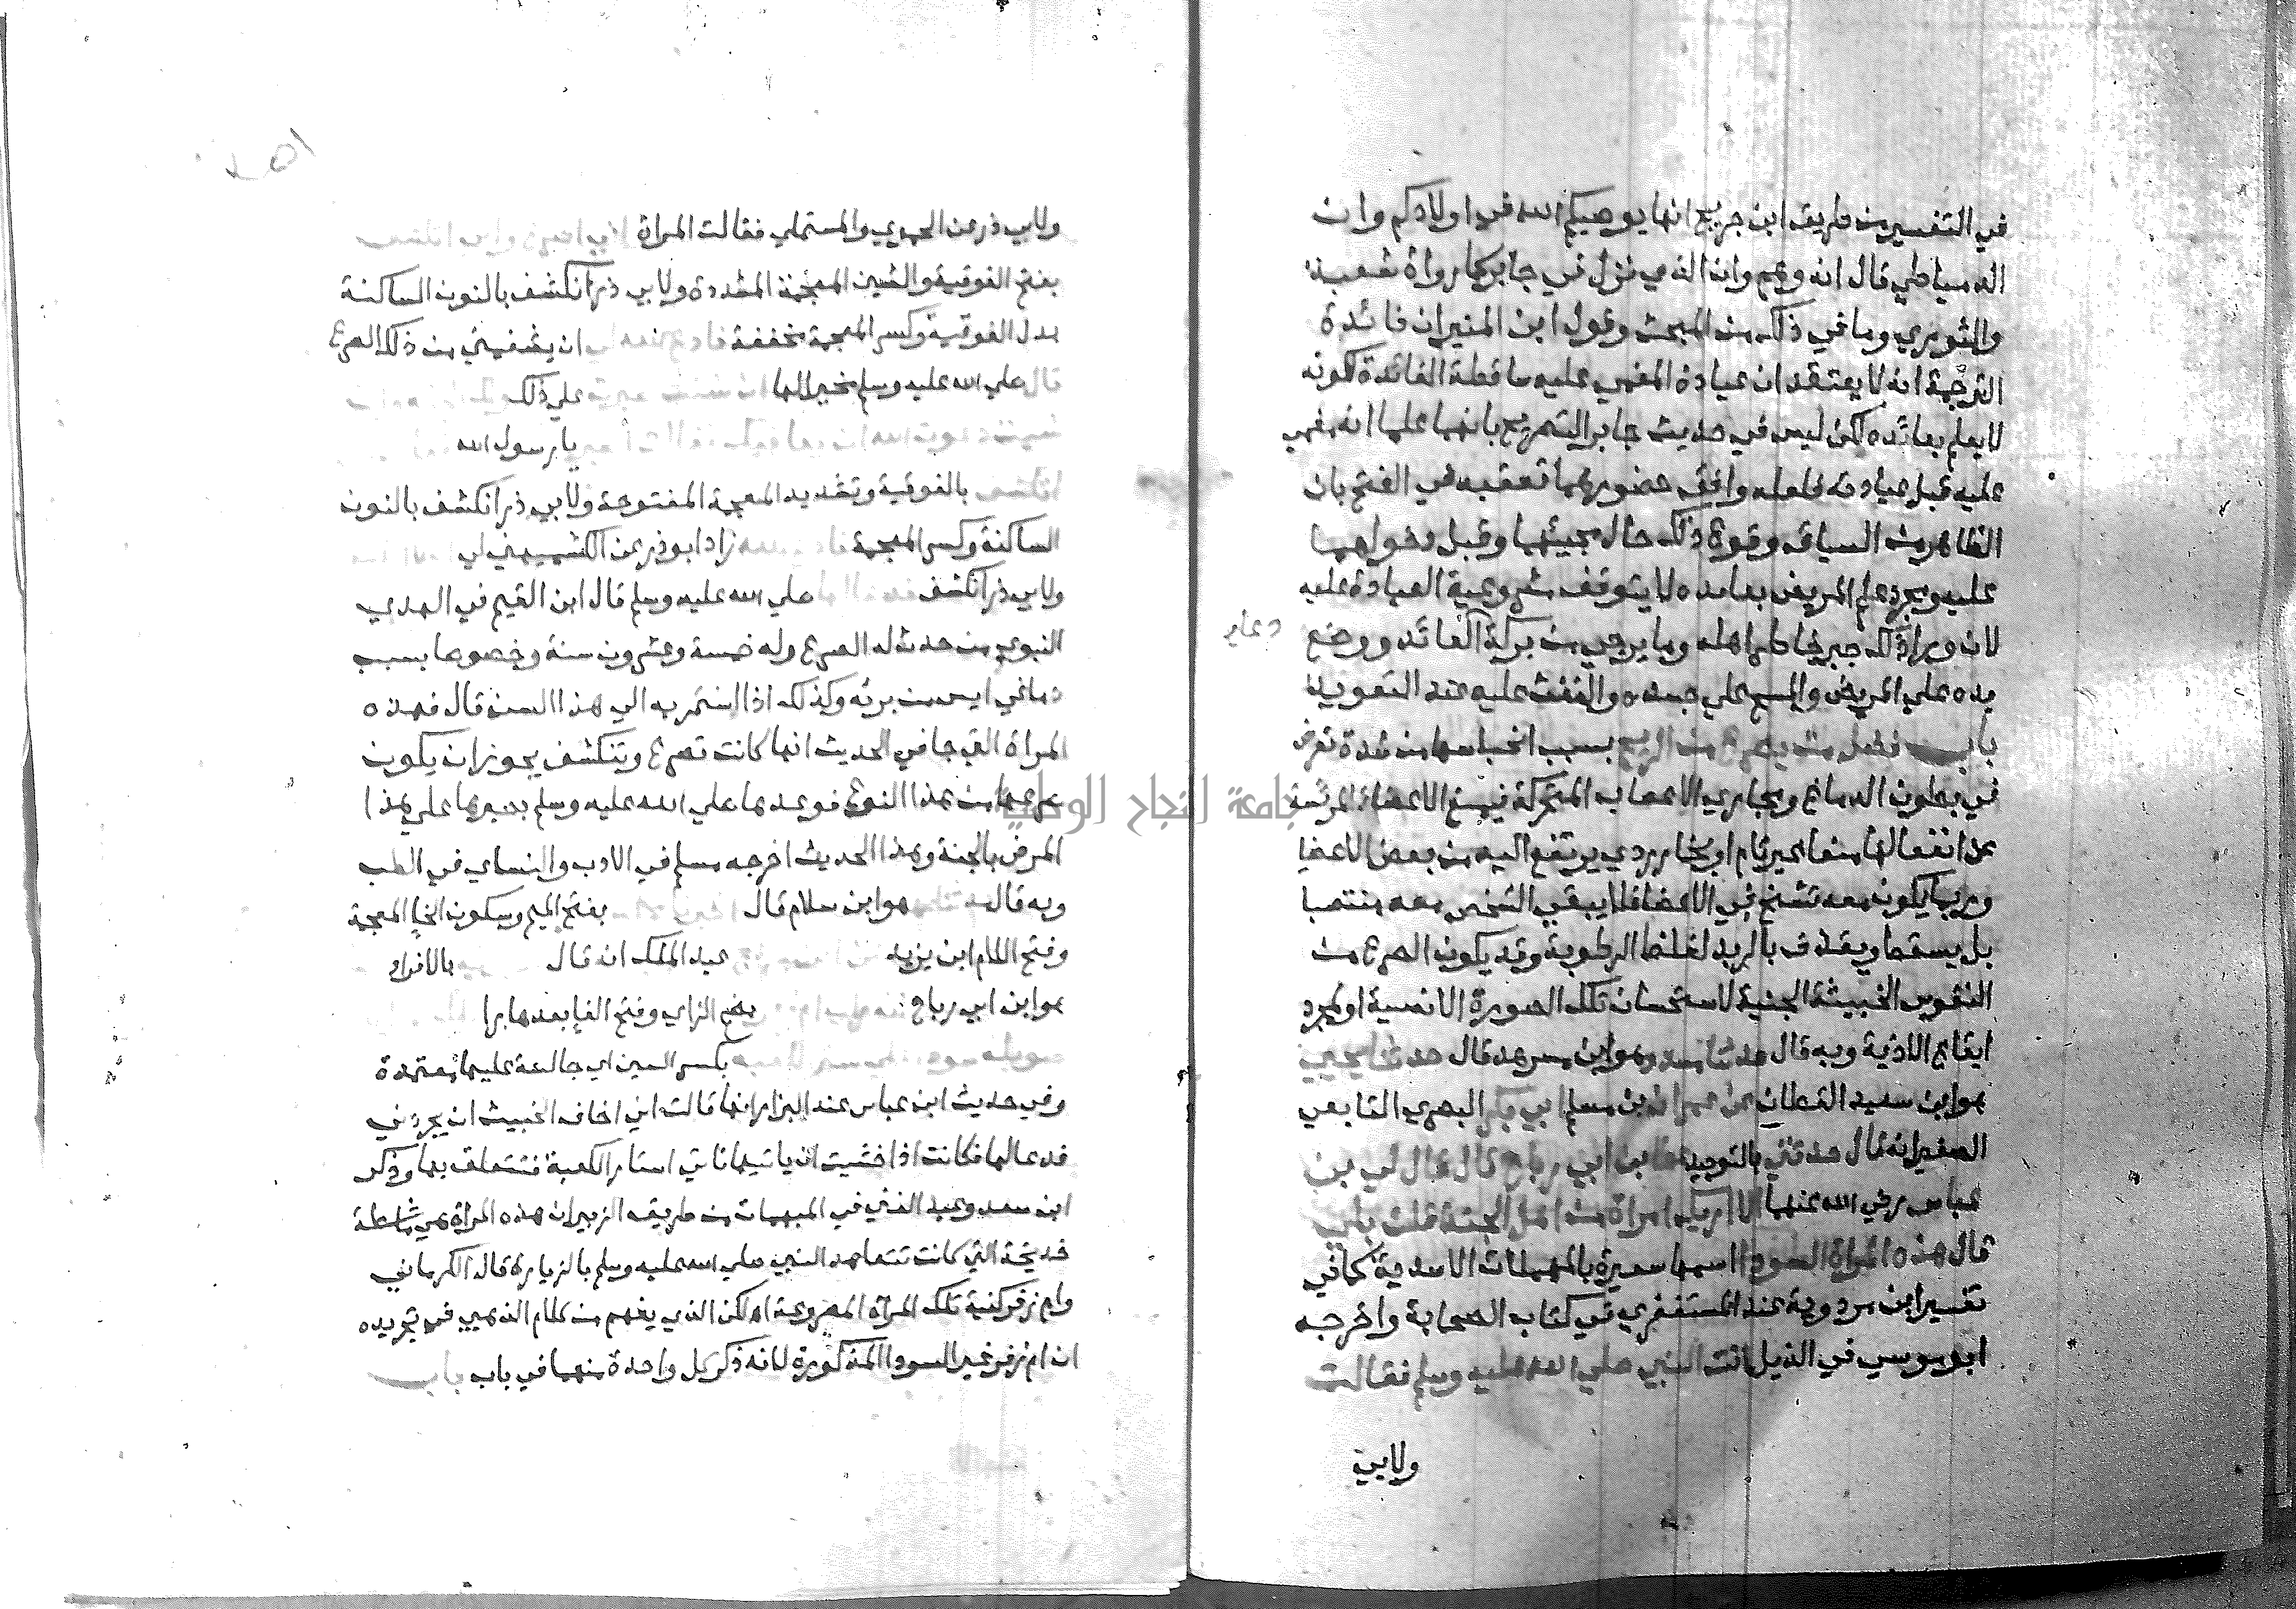 في التفسير من طريق ابن جريج انها يوصيكم الله في اولادكم وان
الدمياطي قال انه وهم وان الذي نزل في جابر كما رواه شعبة
والثوري وما في ذلك من المبحث وقول ابن المنير ان فائدة
الترجمة انه لا يعتقد ان عيادة المغمي عليه ساقطة الفائدة لكونه
لا يعلم بعائده لكن ليس في حديث جابر التصريح بانهما علما انه مغمي
عليه قبل عيادته فلعله وافق حضورهما تعقبه في الفتح بان
الظاهر من السياق وقوع ذلك حال مجيئهما وقبل دخولهما
عليه ومجرد علم المريض بعائده لا يتوقف مشروعية العيادة عليه
لان وراء ذلك جبر خاطر اهله وما يرجي من بركة العائد ووضع
يده علي المريض والمسح علي جسده والنفث عليه عند التعويذ
باب فضل من يصرع من الريح بسبب انحباسها من شدة تعرض
في بطون الدماغ ومجاري الاعصاب المتحركة فيمنع الاعضاء الرئيسة
عن انفعالها منعا غير تام او بخار ردي يرتفع اليه من بعض الاعضا
وربما يكون معه تشنج في الاعضا فلا يبقي الشخص معه منتصبا
بل يسقط ويقذف بالزبد لغلظ الرطوبة وقد يكون الصرع من
النفوس الخبيثة الجنية لاستحسان تلك الصورة الانسية او لمجرد
ايقاع الاذية وبه قال حدثنا مسدد هو ابن مسرهد قال حدثنا يحيي
هو ابن سعيد القطان عن عمران بن مسلم ابي بكر البصري التابعي
الصغير انه قال حدثني بالتوحيد عطا بن ابي رباح قال قال لي بن
عباس رضي الله عنهما الا اريك امراة من اهل الجنة قلت بلي
قال هذه المراة السودا اسمها سعيرة بالمهملات الاسدية كما في
تفسير ابن مردويه عند المستغفري في كتاب الصحابة واخرجه
ابو موسي في الذيل اتت النبي صلي الله عليه وسلم فقالت
ولابي
ولابي ذر عن الحموي والمستملي فقالت المراة
بفتح الفوقية والشين المعجمة المشددة ولابي ذر انكشف بالنون الساكنة
بدل الفوقية وكسر المعجمة مخففة فادع ان يشفيني من ذلك الصرع
قال صلي الله عليه وسلم مخيرا لها علي ذلك
يا رسول الله
بالفوقية وتشديد المعجمة المفتوحة ولابي ذر انكشف بالنون
الساكنة وكسر المعجمة زاد ابو ذر عن الكشميهني لي
ولابي ذر انكشف صلي الله عليه وسلم قال ابن القيم في الهدي
النبوي من حدث له الصرع وله خمسة وعشرون سنة وخصوصا بسبب
دماغي ايس من برئه وكذلك اذا استمر به الي هذا السن قال فهذه
المراة التي جا في الحديث انها كانت تصرع وتنكشف يجوز ان يكون
صرعها من هذا النوع فوعدها صلي الله عليه وسلم بصبرها علي هذا
المرض بالجنة وهذا الحديث اخرجه مسلم في الادب والنساي في الطب
وبه قال هو ابن سلام قال بفتح الميم وسكون الخا المعجمة
وفتح اللام ابن يزيد عبد الملك انه قال بالافراد
هو ابن ابي رباح بضم الزاي وفتح الفا بعدها را
بكسر السين اي جالسة عليها معتمدة
وفي حديث ابن عباس عند البزار انها قالت اني اخاف الخبيث ان يجردني
فدعا لها فكانت اذا خشيت ان ياتيها تاتي استار الكعبة فتتعلق بها وذكر
ابن سعد وعبد الغني في المبهمات من طريق الزبير ان هذه المراة هي ماشطة
خديجة التي كانت تتعاهد النبي صلي الله عليه وسلم بالزيارة قال الكرماني
وام زفر كنية تلك المراة المصروعة اه لكن الذي يفهم من كلام الذهبي في تجريده
ان ام زفر غير السودا المذكورة لانه ذكر كل واحدة منهما في باب
باب
جامعة النجاح الوطنية